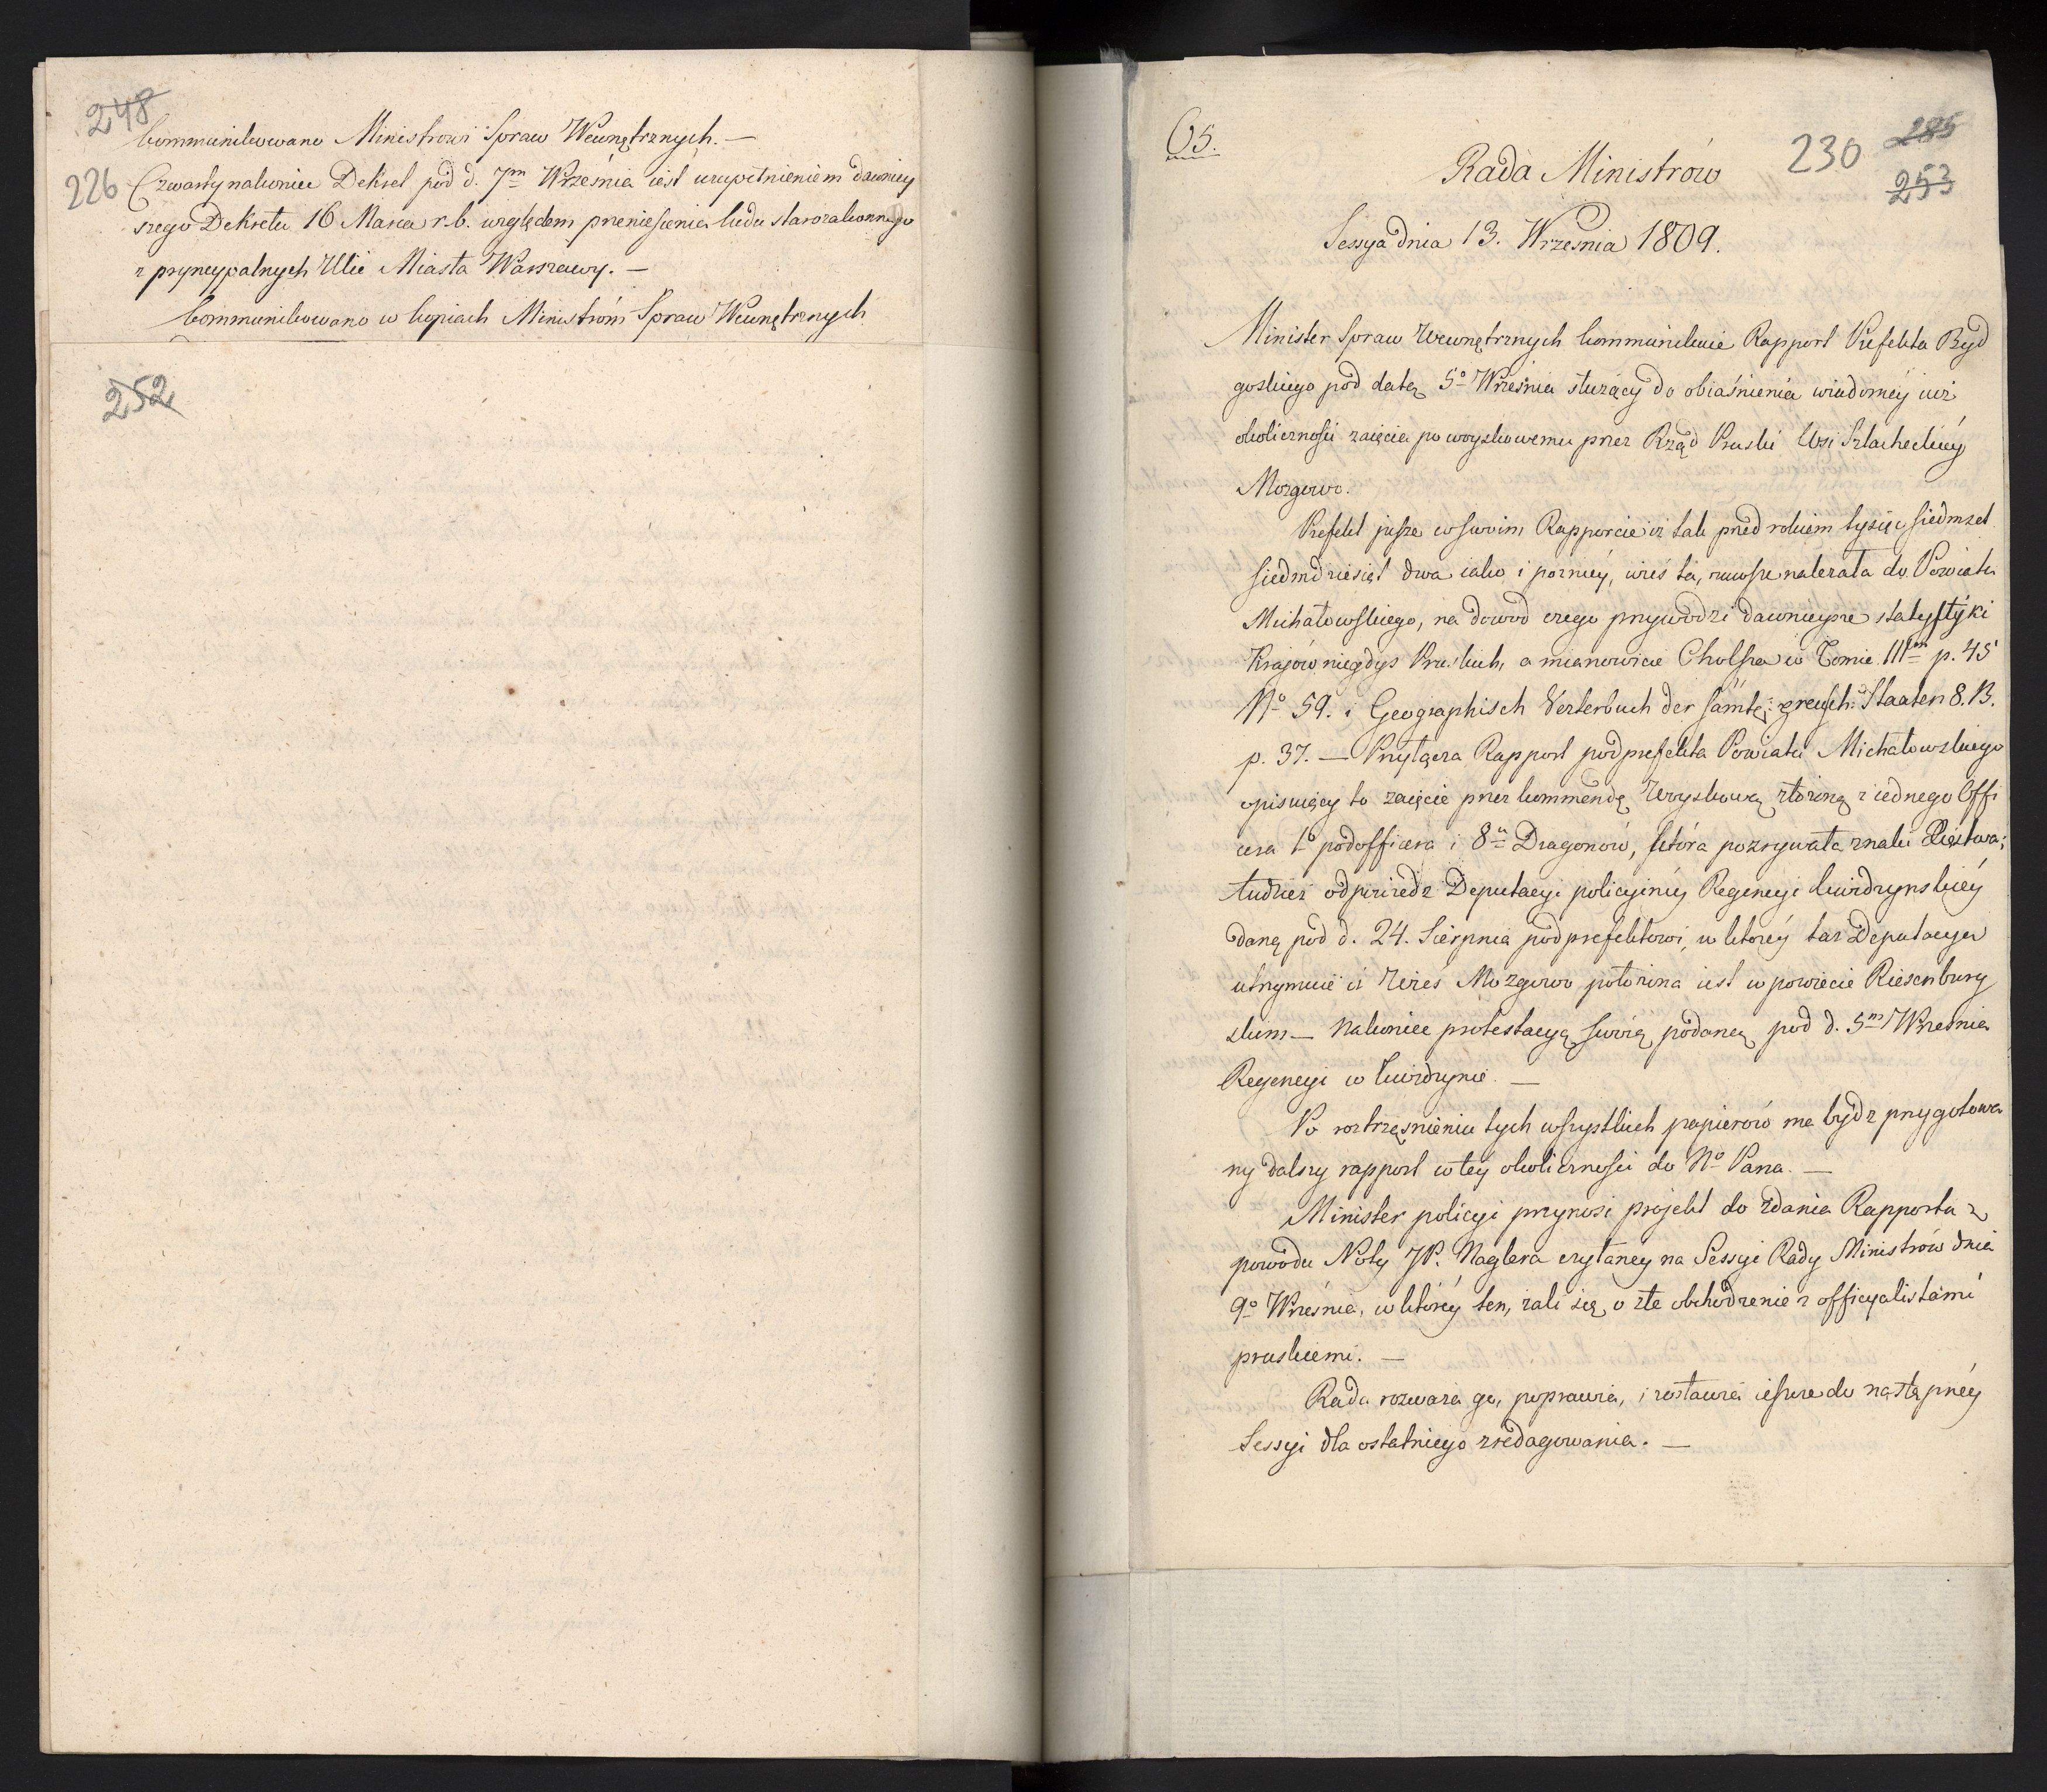 248
Communikowano Ministrowi Spraw Wewnętrznych. —
226 Czwarty nakoniec Dekret pod d. 7m Września iest uzupełnieniem dawniey
szego Dekretu 16 Marca r. b. względem przeniesienia ludu starozakonnego
z pryncypalnych Ulic Miasta Warszawy. —
Communikowano w kopiach Ministrom Spraw Wewnętrznych
252
65.
230 285
253
Rada Ministrów
Sessya dnia 13. Września 1809.
Minister Spraw Wewnętrznych kommunikuie Rapport Prefekta Byd
goskiego pod datą 5o Września służący do obiaśnienia wiadoméy iuż
okoliczności zaięcia po woyskowemu przez Rząd Pruski Wsi Szlacheckiéy
Mozgowo.
Prefekt pisze w swoim Rapporcie iż tak przed rokiem tysiąc siedmset
siedmdziesiąt dwa iako i pozniéy, wieś ta, zawsze należała do Powiatu
Michałowskiego, na dowod czego przywodzi dawnieysze statystyki
Kraiow niegdyś Pruskich, a mianowicie Cholsza w Tomie IIIm p. 45
No 59. i Geographisch Verterbuch der sämtl: preusch: Staaten 8. B.
p. 37. — Przyłącza Rapport podprefekta Powiatu Michałowskiego
opisuiący to zaięcie przez kommendę Woyskową złożoną z iednego Offi
cera 1o podofficera i 8u Dragonów, która pozrywała znaki Xięstwa;
tudzież odpowiedz Deputacyi policyinéy Regencyi kwidzynskiéy
daną pod d. 24. Sierpnia podprefektowi, w któréy taż Deputacya
utrzymuie iż Wieś Mozgowo położona iest w powiecie Riesenburg
skim — nakoniec protestacyą swoią podaną pod d. 5m Września
Regencyi w kwidzynie. —
Po roztrząśnieniu tych wszystkich papierów ma bydz przygotowa
ny dalszy rapport w téy okoliczności do No Pana. —
Minister policyi przynosi projekt do zdania Rapportu z
powodu Noty JP. Naglera czytaney na Sessyi Rady Ministrów dnia
9o Września, w któréy ten, żali się o złe obchodzenie z officyalistami
pruskiemi. —
Rada rozważa go, poprawia, i zostawia ieszcze do następnéy
Sessyi dla ostatniego zredagowania. —